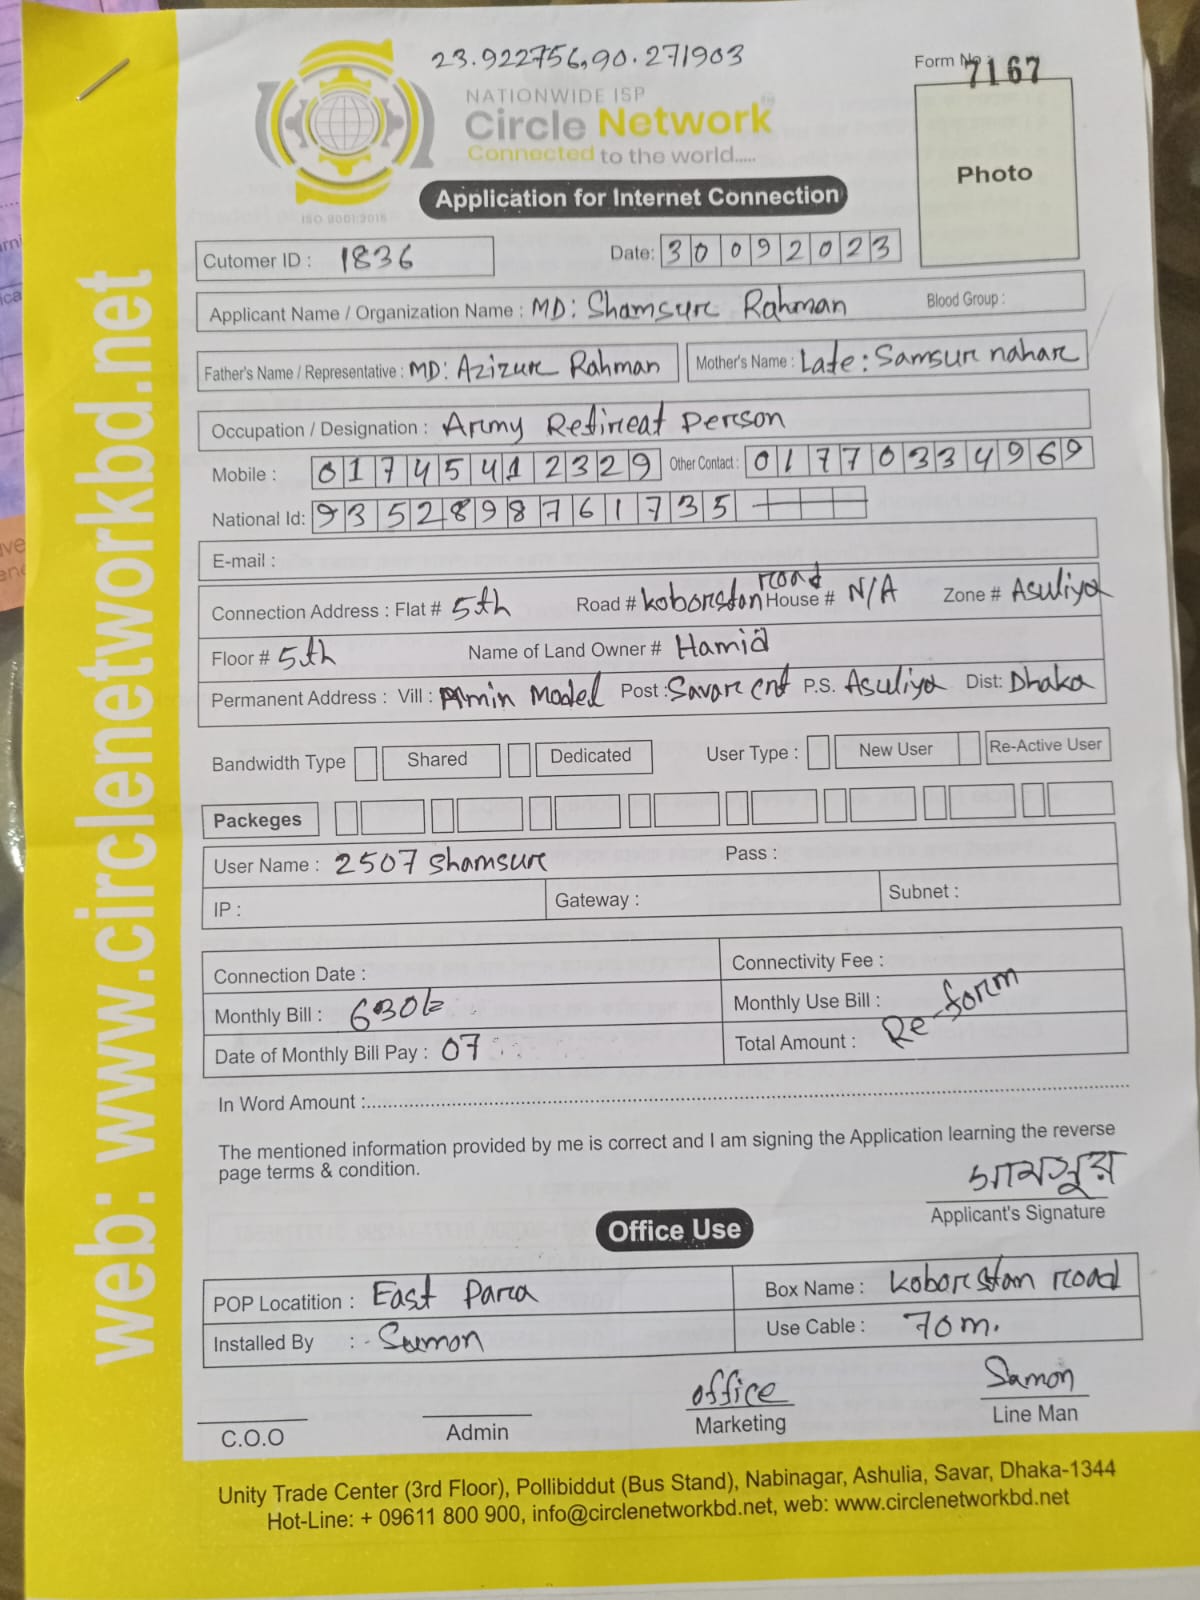 23.922756,90.271903
Form No : 7167
NATIONWIDE ISP
Circle Network
Connected to the world.....
ISO 9001:2015
Photo
Application for Internet Connection
Cutomer ID : 1836 Date: 30092023
Applicant Name / Organization Name : MD: Shamsur Rahman Blood Group :
Father's Name / Representative : MD: Azizur Rahman Mother's Name : Late: Samsur nahar
Occupation / Designation : Army Retireat Person
Mobile : 01745412329 Other Contact : 01770334969
National Id: 9352898761735
E-mail :
Connection Address : Flat # 5th Road # koborstan road House # N/A Zone # Asuliya
Floor # 5th Name of Land Owner # Hamid
Permanent Address : Vill : Amin Model Post : Savar cnt P.S. Asuliya Dist: Dhaka
Bandwidth Type Shared Dedicated User Type : New User Re-Active User
Packeges
User Name : 2507 shamsur Pass :
IP : Gateway : Subnet :
Connection Date : Connectivity Fee :
Monthly Bill : 630 Monthly Use Bill :
Re-form
Date of Monthly Bill Pay : 07 Total Amount :
In Word Amount :
The mentioned information provided by me is correct and I am signing the Application learning the reverse
page terms & condition.
শামসুর
Applicant's Signature
Office Use
POP Locatition : East Para Box Name : koborstan road
Installed By : - Sumon Use Cable : 70m.
office Samon
C.O.O Admin Marketing Line Man
Unity Trade Center (3rd Floor), Pollibiddut (Bus Stand), Nabinagar, Ashulia, Savar, Dhaka-1344
Hot-Line: + 09611 800 900, info@circlenetworkbd.net, web: www.circlenetworkbd.net
web: www.circlenetworkbd.net